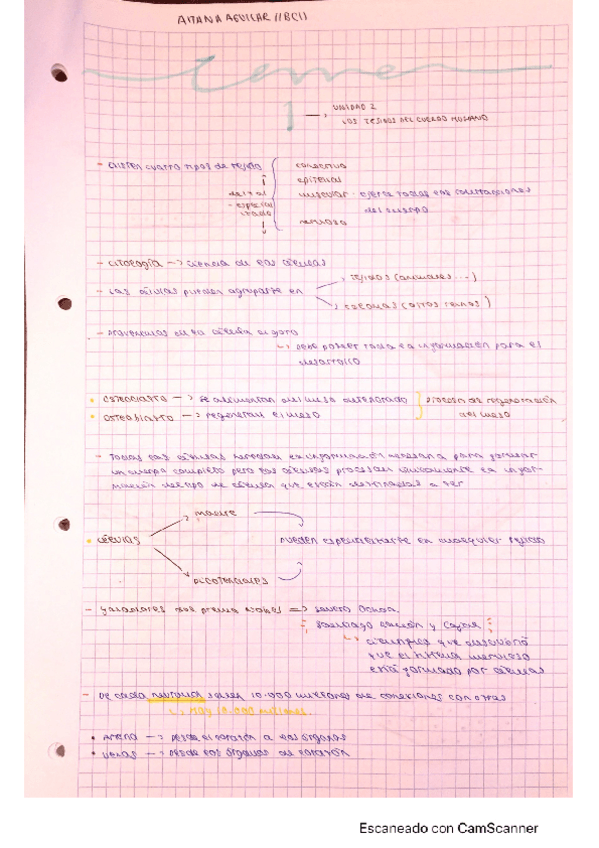 AITANA AGUILAR 1ºBC11
Tema
1 → UNIDAD 2
LOS TEJIDOS DEL CUERPO HUMANO
- Existen cuatro tipos de tejido
conectivo
epitelial
muscular - ejerce todas las contracciones
del cuerpo
nervioso
- citología → ciencia de las células
- Las células pueden agruparse en
tejidos (animales...)
colonias (otros reinos)
- Provenimos de la célula cigoto
↳ debe poseer toda la información para el
desarrollo
• osteoclasto → se alimentan del hueso deteriorado
• osteoblasto → regeneran el hueso
proceso de regeneración
del hueso
- Todas las células heredan la información necesaria para formar
un cuerpo completo pero las células procesan únicamente la infor-
mación del tipo de célula que están destinadas a ser
• células
madre
pluripotenciales
pueden especializarse en cualquier tejido
- ganadores del premio nobel => Severo Ochoa
Santiago Ramón y Cajal
↳ científico que descubrió
que el sistema nervioso
está formado por células
- De cada neurona salen 10.000 millones de conexiones con otras
↳ Hay 10.000 millones
• Arteria → desde el corazón a los órganos
• Venas → desde los órganos al corazón
Escaneado con CamScanner